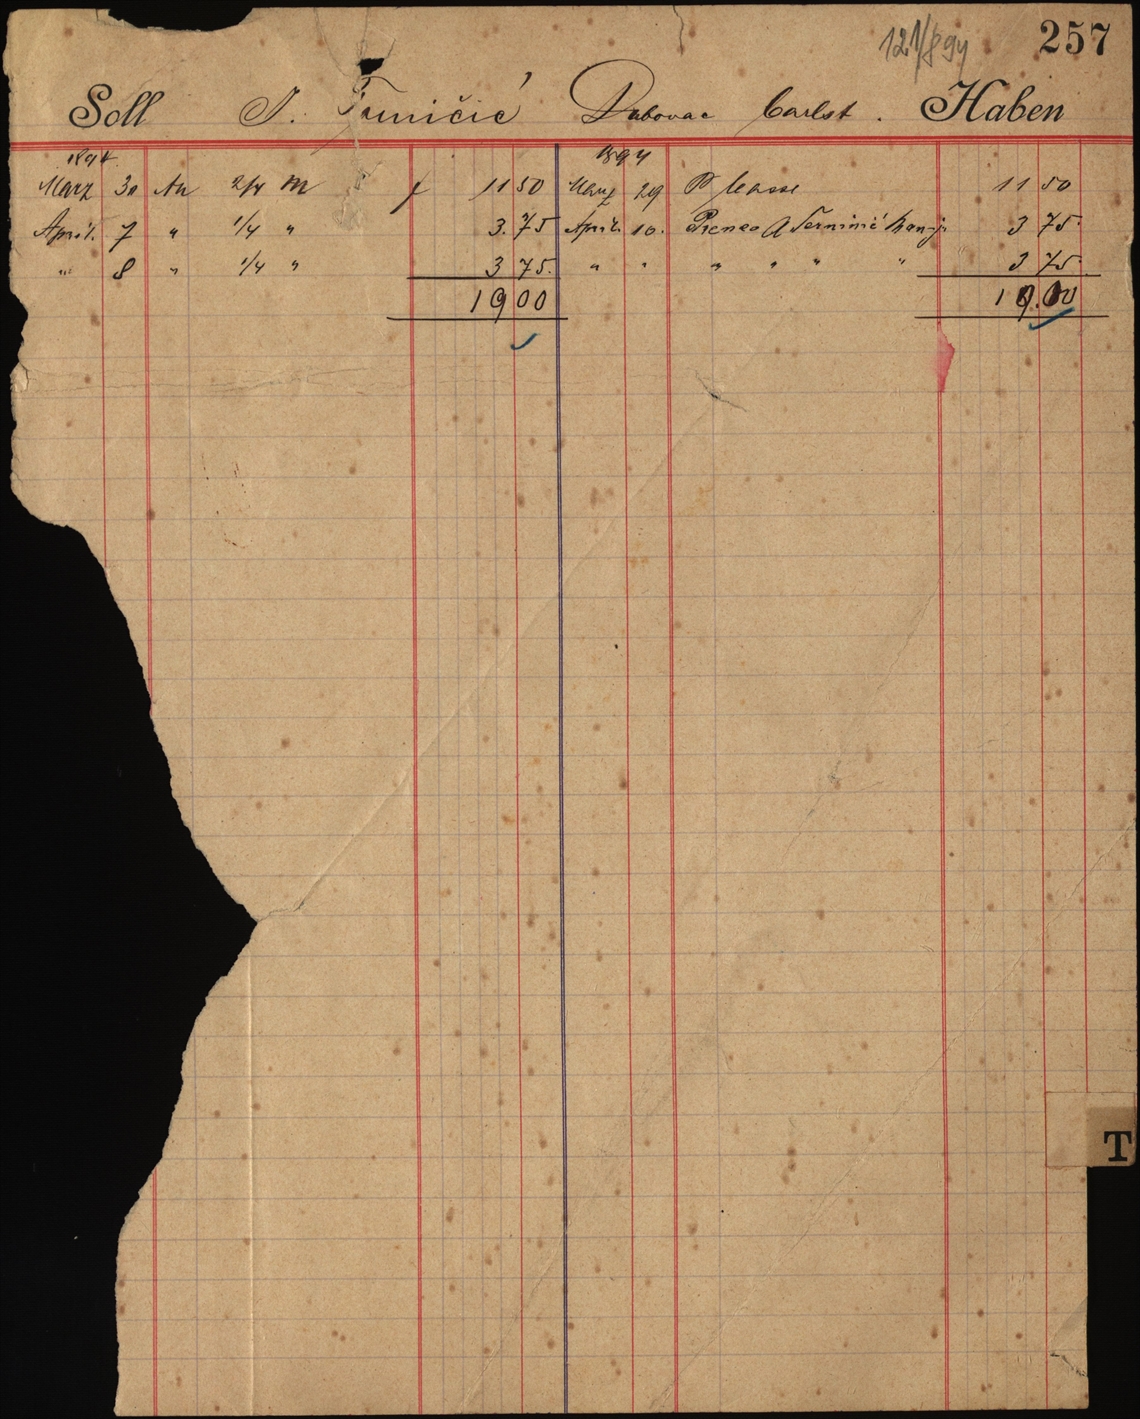 257
Soll J. Tuničić Dubovac Carlst. Haben
1894. 1894
März 30 An 2/4 M f 11 50 März 29 P Cassa 11 50
April. 7 " 1/4 " 3.75 April. 10. 3 75.
" 8 " 1/4 " 3 75. " " " " " " 3 75.
19 00 19.00
T